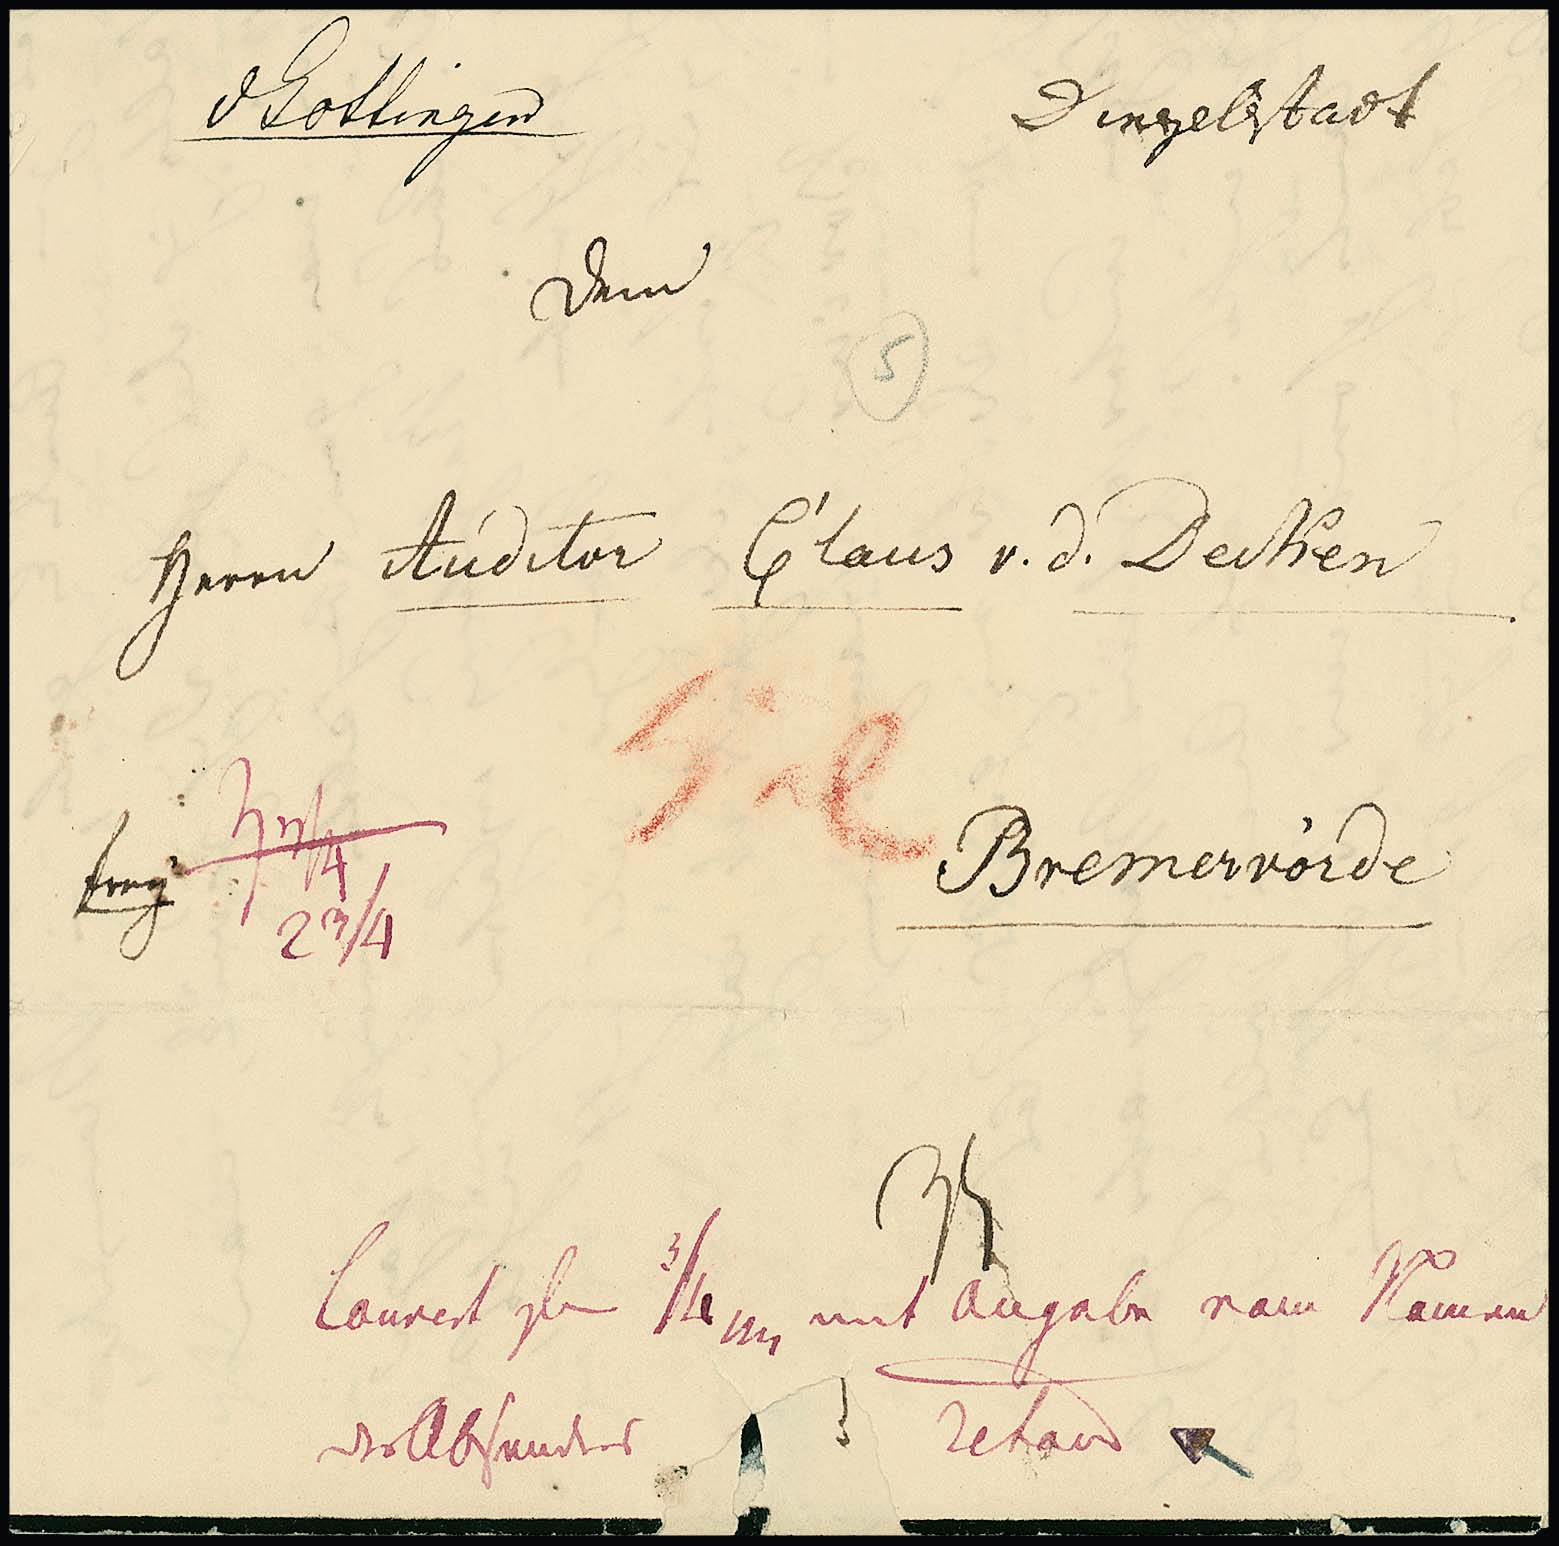 v Gottingen
Dingelstadt
Dem
5
Herrn Auditor Claus v. d. Decken
frey
2 3/4
Bremervörde
Couvert 3/4 mit Angabe vom Namen
des Absenders retour